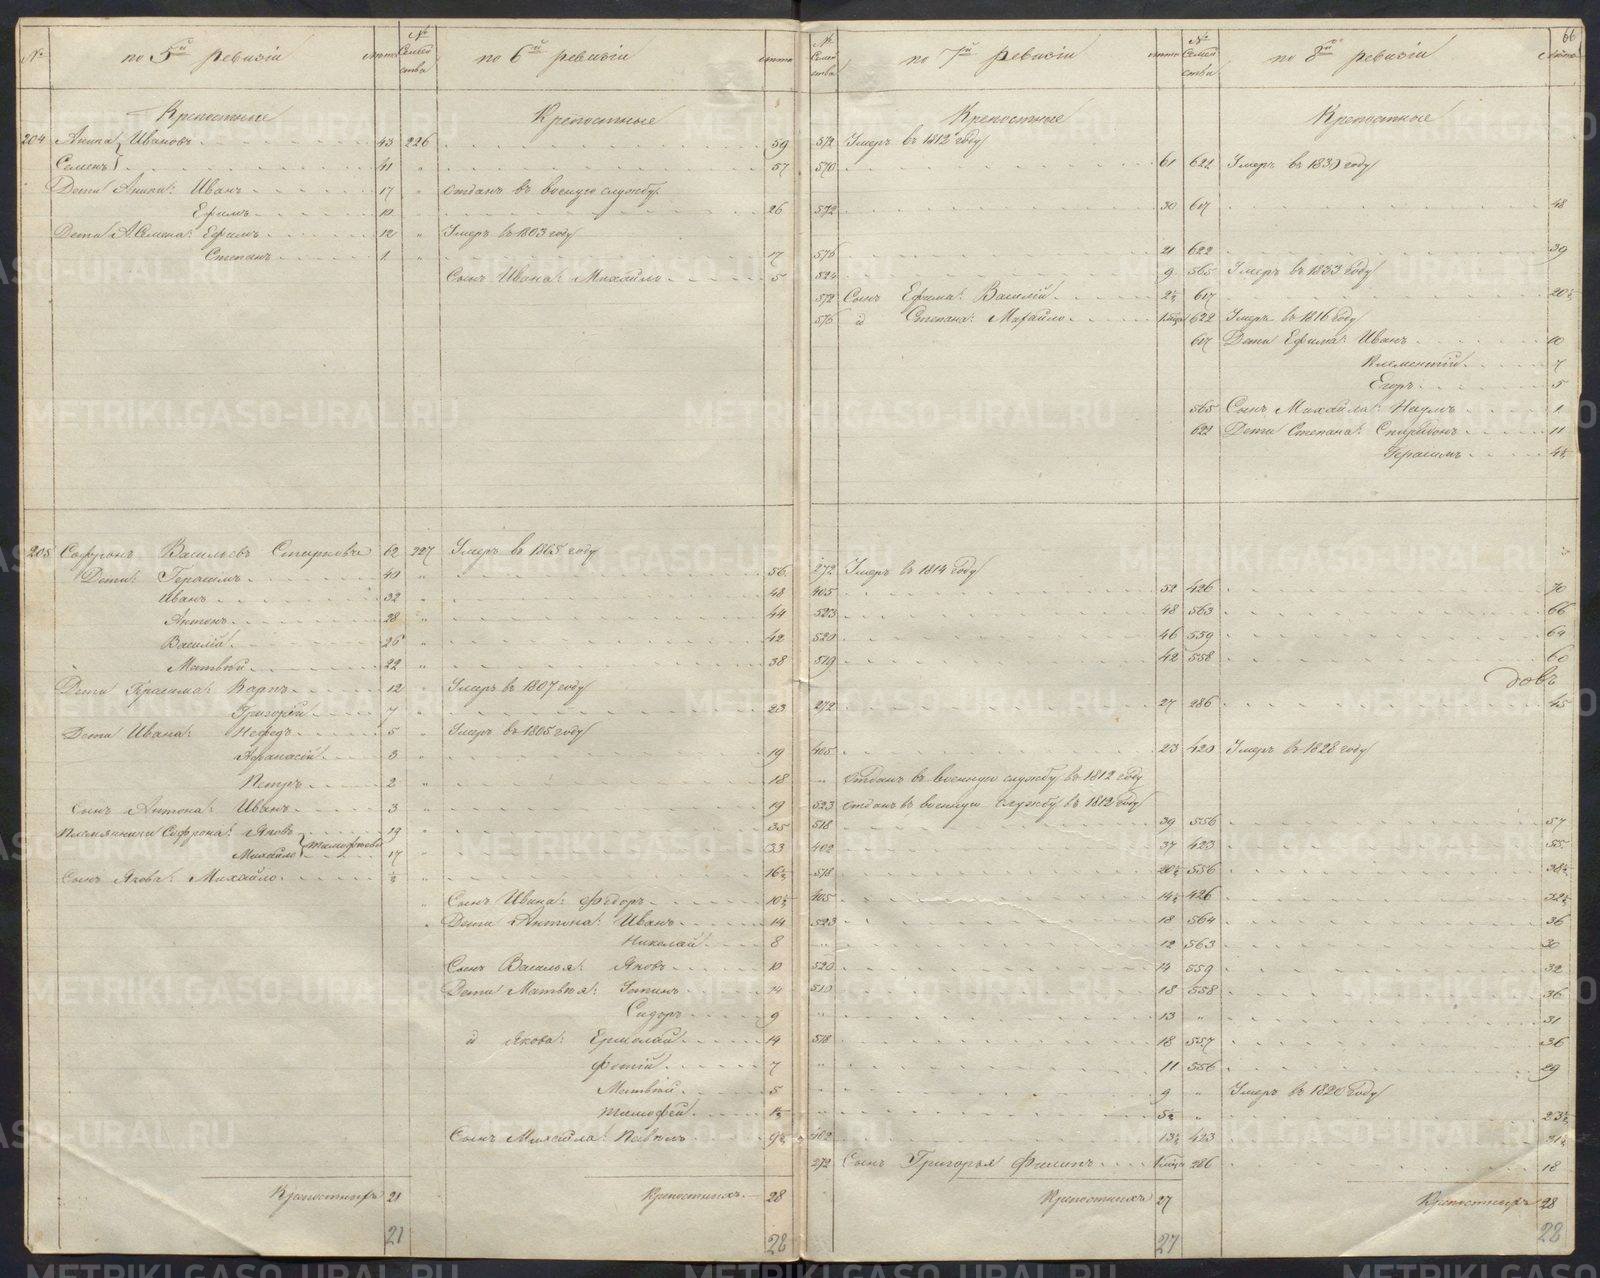 № по 5й ревизiи лѣта № Семейства по 6й ревизiи лѣта № Семейства по 7й ревизiи лѣта № Семейства по 8й ревизiи лѣта 66
Крепостные Крепостные Крепостные Крепостные
204 Аника Ивановъ 43 226 59 572 Умеръ въ 1812 году
Семенъ 41 " 57 570 61 622 Умеръ въ 1830 году
Дети Аники: Иванъ 17 " отданъ въ военную службу
Ефимъ 10 26 572 30 617 48
Дети Семена: Ефимъ 12 " Умеръ въ 1803 году
Степанъ 1 " 17 576 21 622 39
Сынъ Ивана: Михайлъ 5 524 9 565 Умеръ въ 1833 году
572 Сынъ Ефима: Василiй 2½ 617 20½
576 и Степана: Михайло 622 Умеръ въ 1816 году
617 Дети Ефима: Иванъ 10
Клементiй 7
Егоръ 5
565 Сынъ Михайла: Наумъ 1
622 Дети Степана: Спиридонъ 11
Герасимъ 4½
205 Софронъ Васильевъ 62 227 Умеръ въ 1805 году
Дети: Герасимъ 40 " 56 272 Умеръ въ 1814 году
Иванъ 32 " 48 405 52 426 70
Антонъ 28 " 44 523 48 563 66
Василiй 26 " 42 520 46 559 64
Матвѣй 22 " 38 519 42 558 60
довъ
Дети Герасима: Карпъ 12 " Умеръ въ 1807 году
Григорiй 7 " 23 272 27 286 45
Дети Ивана: Нефедъ 5 " Умеръ въ 1805 году
Афанасiй 3 " 19 405 23 420 Умеръ въ 1828 году
Петръ 2 " 18 " отданъ въ военную службу въ 1812 году
Сынъ Антона: Иванъ 3 " 19 523 отданъ въ военную службу въ 1812 году
Племянники Софрона: Яковъ 19 " 35 518 39 556 57
Михайло Тимофѣевы 17 " 33 402 37 423 55
Сынъ Якова: Михайло ½ " 16½ 518 20½ 556 38½
" Сынъ Ивана: Федоръ 10½ 405 14½ 426 32½
" Дети Антона: Иванъ 14 523 18 564 36
Николай 8 " 12 563 30
Сынъ Василья: Яковъ 10 520 14 559 32
Дети Матвѣя: 14 519 18 558 36
Сидоръ 9 " 13 " 31
и Якова: Ермолай 14 518 18 557 36
Фотiй 7 " 11 556 29
Матвѣй 5 " 9 " Умеръ въ 1820 году
Тимофей 1½ " 5½ 23½
Сынъ Михайла: Павелъ 9½ 402 13½ 423 31½
272 Сынъ Григорья Филипъ 286 18
Крепостныхъ 21 Крепостныхъ 28 Крепостныхъ 27 Крепостныхъ 28
21 28 27 28
METRIKI.GASO-URAL.RU